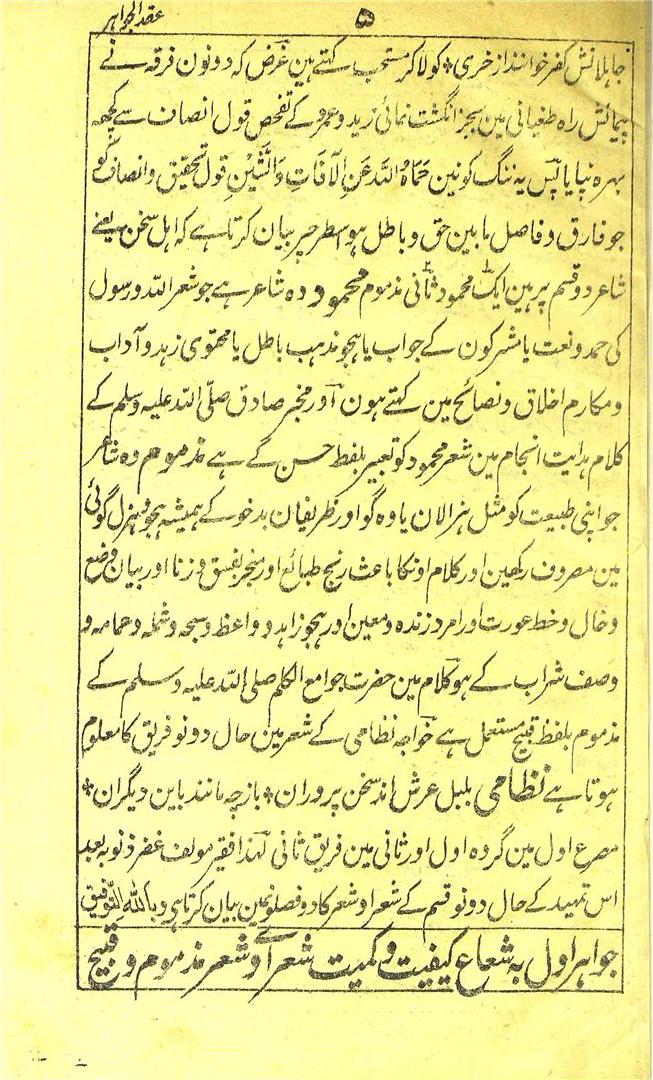 عقد الجواہر
۵
جاہلانش کفر خوانند از خری * کو لاکر مستحب کہتے ہین غرض کہ دونون فرقہ نے
پیمائش راہ طغیانی مین بجز انگشت نمائی زید و عمرو کے تفحص قول انصاف سے کچھہ
بہرہ نپایا پس یہ ننگ کونین حَمَاہُ اللہ عَنِ الآفَاتِ وَالشَّیْنِ قول تحقیق و انصاف کو
جو فارق و فاصل مابین حق و باطل ہو اسطرحپر بیان کرتا ہے کہ اہل سخن یعنے
شاعر دو قسم پر ہین ایک محمود ثانی مذموم محمود دہ شاعر ہے جو شعر اللہ و رسول
کی حمد و نعت یا مشرکون کے جواب یا ہجو مذہب باطل یا محتوی زہد و آداب
و مکارم اخلاق و نصائح مین کہتے ہون اور مخبر صادق صلی اللہ علیہ وسلم کے
کلام ہدایت انجام مین شعر محمود کو تعبیر بلفظ حسن کے ہے مذموم وہ شاعر
جو اپنی طبیعت کو مثل ہزالان یاوہ گو اور ظریفان بدخو کے ہمیشہ ہجو و ہزل گوئی
مین مصروف رکھین اور کلام اونکا باعث رنج طبائع اور منجر بفسق و زنا اور بیان وضع
و خال و خط عورت اور امرد زندہ و معین اور ہجو زاہد و واعظ و سبحہ و شملہ و عمامہ و
وصف شراب کے ہو کلام مین حضرت جوامع الکلم صلی اللہ علیہ وسلم کے
مذموم بلفظ قبیح مستعمل ہے خواجہ نظامی کے شعر مین حال دونو فریق کا معلوم
ہوتا ہے نظامی بلبل عرش اند سخن پروران * باز چہ مانند باین دیگران *
مصرع اول مین گروہ اول اور ثانی مین فریق ثانی لہذا فقیر مولف غفر ذنوبہ بعد
اس تمہید کے حال دونو قسم کے شعرا و شعر کا دو فصلونمین بیان کرتا ہی و باللہ التوفیق
جواہر اول بہ شعاع کیفیت و کمیت شعرا و شعر مذموم و قبیح